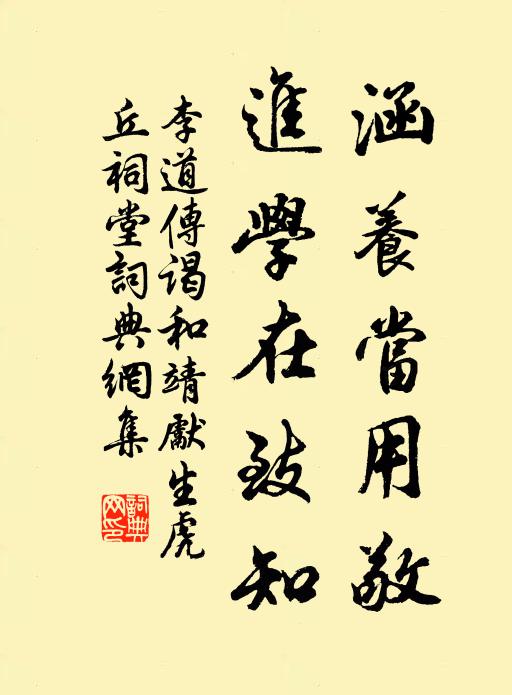 涵養當用敬
進學在致知
李道傳謁和靖獻生虎
丘祠堂詞典網集
詞典網印